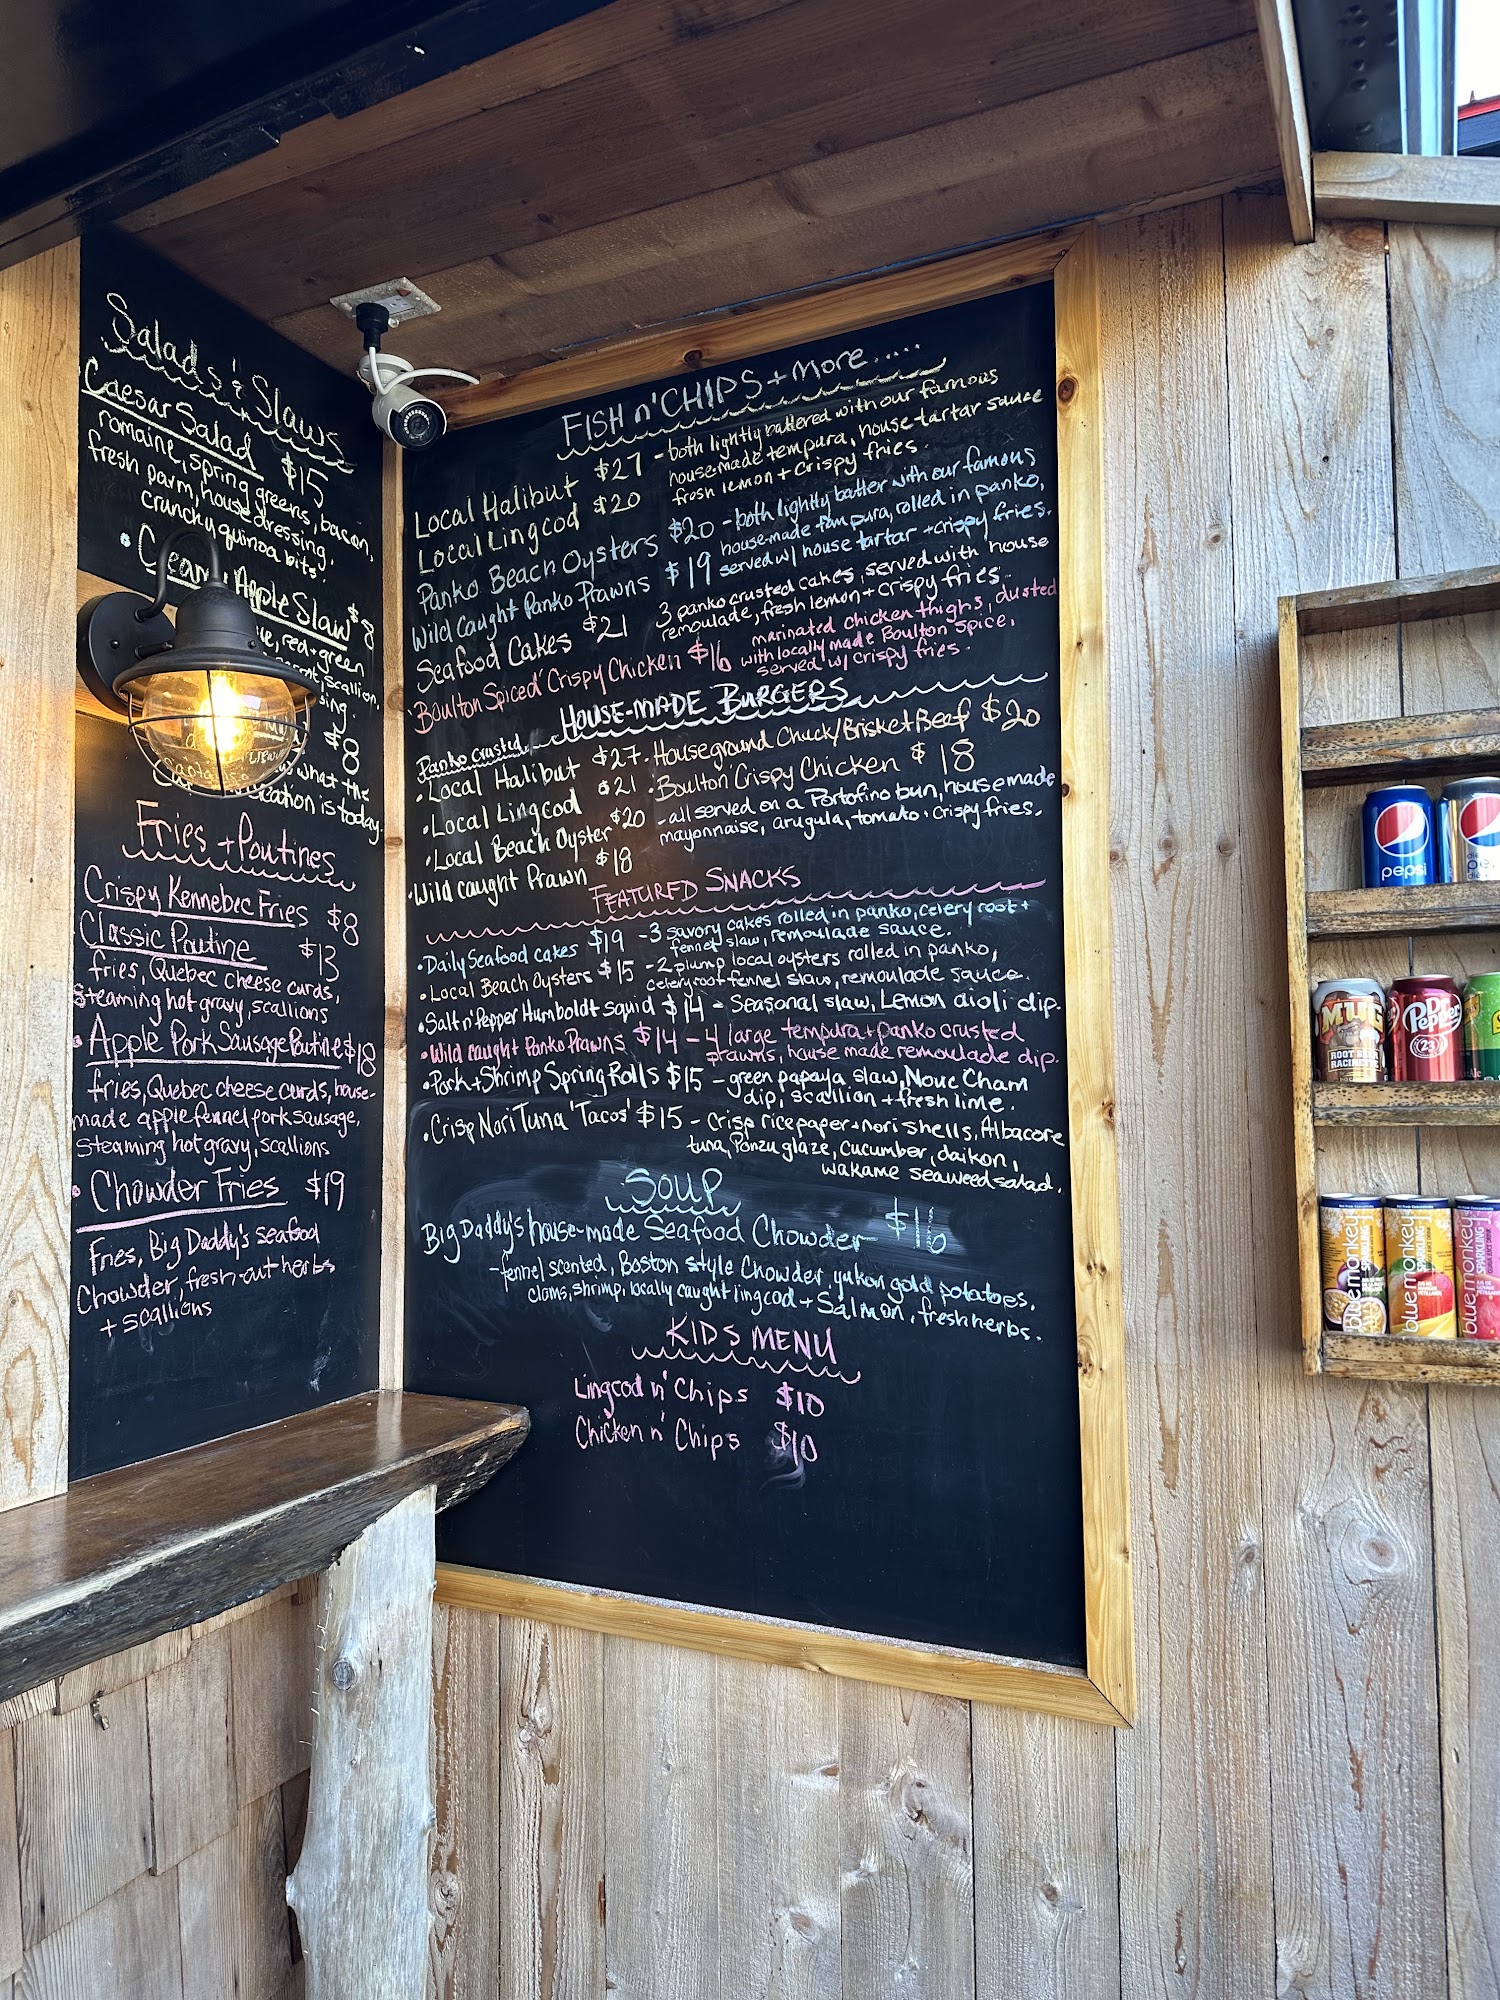 Salads & Slaws
Caesar Salad $15
romaine, spring greens, bacon,
fresh parm, house dressing,
crunchy quinoa bits.
• Creamy Apple Slaw $8
red + green
scallion,
$8
what the
is today.
Fries + Poutines
Crispy Kennebec Fries $8
Classic Poutine $13
fries, Quebec cheese curds,
Steaming hot gravy, scallions
• Apple Pork Sausage Poutine $18
fries, Quebec cheese curds, house-
made apple fennel pork sausage,
Steaming hot gravy, scallions
• Chowder Fries $19
Fries, Big Daddy's seafood
Chowder, fresh-cut herbs
+ scallions
FISH n' CHIPS + More.....
Local Halibut $27 - both lightly battered with our famous
Local Lingcod $20 house-made tempura, house-tartar sauce
fresh lemon + crispy fries.
Panko Beach Oysters $20 - both lightly batter with our famous
Wild Caught Panko Prawns $19 house-made tempura, rolled in panko,
served w/ house tartar + crispy fries.
Seafood Cakes $21 3 panko crusted cakes, served with house
remoulade, fresh lemon + crispy fries.
'Boulton Spiced' Crispy Chicken $16 marinated chicken thighs, dusted
with locally made Boulton Spice,
served w/ crispy fries.
HOUSE-MADE BURGERS
Panko crusted
• Local Halibut $27 • Houseground Chuck/Brisket Beef $20
• Local Lingcod $21 • Boulton Crispy Chicken $18
• Local Beach Oyster $20 - all served on a Portofino bun, housemade
• Wild caught Prawn $18 mayonnaise, arugula, tomato • crispy fries.
FEATURED SNACKS
• Daily Seafood cakes $19 - 3 savory cakes rolled in panko, celery root +
fennel slaw, remoulade sauce.
• Local Beach Oysters $15 - 2 plump local oysters rolled in panko,
celery root fennel slaw, remoulade sauce.
• Salt n' Pepper Humboldt squid $14 - Seasonal slaw, Lemon aioli dip.
• Wild caught Panko Prawns $14 - 4 large tempura + panko crusted
prawns, house made remoulade dip.
• Pork + Shrimp Spring Rolls $15 - green papaya slaw, Nouc Cham
dip, scallion + fresh lime.
• Crisp Nori Tuna 'Tacos' $15 - Crisp rice paper + nori shells, Albacore
tuna, Ponzu glaze, cucumber, daikon,
wakame seaweed salad.
SOUP
Big Daddy's house-made Seafood Chowder $16
- fennel scented, Boston style Chowder, yukon gold potatoes,
clams, shrimp, locally caught lingcod + Salmon, fresh herbs.
KIDS MENU
Lingcod n' Chips $10
Chicken n' Chips $10
pepsi
MUG
ROOT BEER
Dr Pepper
23
bluemonkey SPARKLING
bluemonkey SPARKLING
bluemonkey SPARKLING